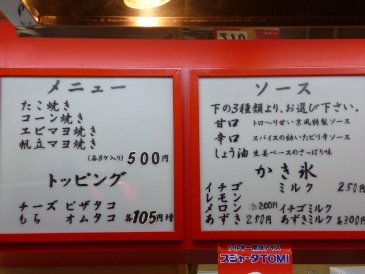 メニュー
たこ焼き
コーン焼き
エビマヨ焼き
帆立マヨ焼き
(各8ケ入り) 500円
トッピング
チーズ ピザタコ
もち オムタコ 各105円増
ソース
下の3種類より、お選び下さい。
甘口 トロ〜リ甘い京風特製ソース
辛口 スパイスの効いたピリ辛ソース
しょう油 生姜ベースのさっぱり味
かき氷
イチゴ ミルク 250円
レモン
メロン 200円 イチゴミルク
あずき 250円 あずきミルク 各300円
スジャータTOMI